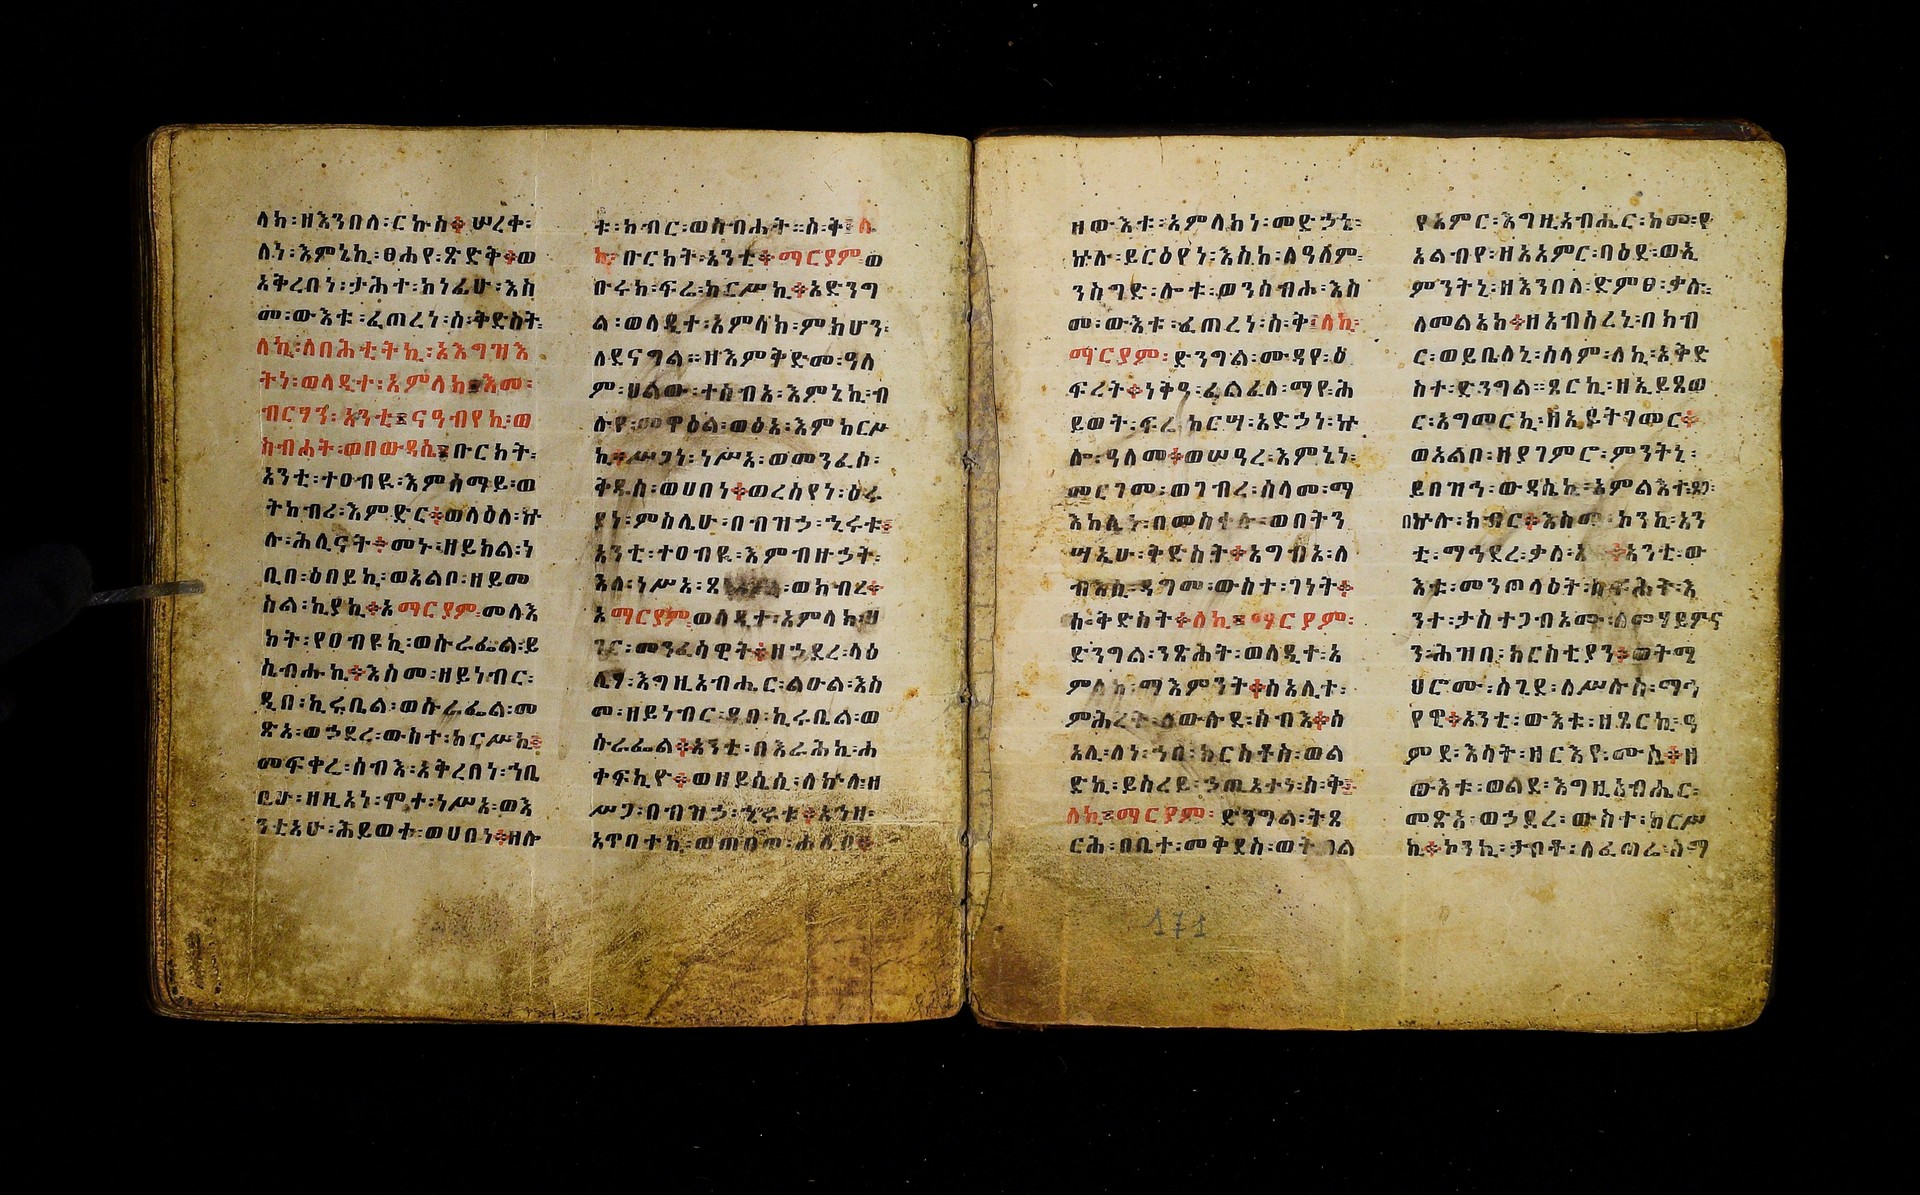 ላክ፡ዘእንበለ፡ርኩስ፨ሠረቀ፡
ለነ፡እምኔኪ፡ፀሐየ፡ጽድቅ፨ወ
አቅረበነ፡ታሕተ፡ክነፊሁ፡እስ
መ፡ውእቱ፡ፈጠረነ፡ስ፡ቅድስት፡
ለኪ፡ለበሕቲትኪ፡ኦእግዝእ
ትነ፡ወላዲተ፡አምላክ፡እመ፡
ብርሃን፡አንቲ፡ናዓብየኪ፡ወ
ክብሐት፡ወበውዳሴ፡ቡርክት፡
አንቲ፡ተዐብዪ፡እምሰማይ፡ወ
ትከብሪ፡እምድር፨ወላዕለ፡ኵ
ሉ፡ሕሊናት፨መኑ፡ዘይክል፡ነ
ቢበ፡ዕበይኪ፡ወአልቦ፡ዘይመ
ስል፡ኪያኪ፨ኦማርያም፡መላእ
ክት፡የዐብዩኪ፡ወሱራፌል፡ይ
ሴብሑኪ፨እስመ፡ዘይነብር፡
ዲበ፡ኪሩቤል፡ወሱራፌል፡መ
ጽአ፡ወኃደረ፡ውስተ፡ከርሥኪ፨
መፍቀሬ፡ሰብእ፡አቅረበነ፡ኀቤ
ሁ፡ዘዚአነ፡ሞተ፡ነሥአ፡ወእ
ንቲአሁ፡ሕይወተ፡ወሀበነ፨ዘሎ
ቱ፡ክብር፡ወስብሐት።ስ፡ቅ፡ለ
ኪ፡ቡርክት፡አንቲ፨ማርያም፡ወ
ቡሩክ፡ፍሬ፡ከርሥኪ፨ኦድንግ
ል፡ወላዲተ፡አምላክ፡ምክሆን፡
ለደናግል።ዘእምቅድመ፡ዓለ
ም፡ሀልው፡ተሰብአ፡እምኔኪ፡ብ
ሉየ፡መዋዕል፡ወፅአ፡እምከርሥ
ኪ፨ሥጋነ፡ነሥአ፡ወመንፈሰ፡
ቅዱስ፡ወሀበነ፨ወረሰየነ፡ዕሩ
ያነ፡ምስሌሁ፡በብዝኃ፡ኂሩቱ፨
አንቲ፡ተዐብዪ፡እምብዙኃት፡
እለ፡ነሥአ፡ጸ ፡ወክብረ፨
ኦማርያም፡ወላዲተ፡አምላክ፡ሀ
ገር፡መንፈሳዊት፨ዘኃደረ፡ላዕ
ሌሃ፡እግዚአብሔር፡ልዑል፡እስ
መ፡ዘይነብር፡ዲበ፡ኪሩቤል፡ወ
ሱራፌል፨አንቲ፡በእራሕኪ፡ሐ
ቀፍኪዮ፨ወዘይሴሲ፡ለኵሉ፡ዘ
ሥጋ፡በብዝኃ፡ኂሩቱ፨አኀዘ፡
አጥባተኪ፡ወጠበወ፡ሐሊበ፨
ዘውእቱ፡አምላክነ፡መድኃኔ፡
ኵሉ፡ይርዕየነ፡እስከ፡ለዓለም፡
ንስግድ፡ሎቱ፡ወንሰብሑ፡እስ
መ፡ውእቱ፡ፈጠረነ፡ስ፡ቅ፡ለኪ፡
ማርያም፡ድንግል፡ሙዳየ፡ዕ
ፍረት፨ነቅዓ፡ፈልፈለ፡ማየ፡ሕ
ይወት፡ፍሬ፡ከርሣ፡አድኃነ፡ኵ
ሎ፡ዓለመ፨ወሠዓረ፡እምኔነ፡
መርገመ፡ወገብረ፡ሰላመ፡ማ
እከሌነ፡በመስቀሉ፡ወበትን
ሣኤሁ፡ቅድስት፨አግብአ፡ለ
ብእሲ፡ዳግመ፡ውስተ፡ገነት፨
ስ፡ቅድስት፨ለኪ፡ማርያም፡
ድንግል፡ንጽሕት፡ወላዲተ፡አ
ምላክ፡ማእምንት፨ሰአሊተ፡
ምሕረት፡ለውሉደ፡ሰብእ፨ሰ
አሊ፡ለነ፡ኀበ፡ክርስቶስ፡ወል
ድኪ፡ይስረይ፡ኃጢአተነ፡ስ፡ቅ፨
ለኪ፡ማርያም፡ድንግል፡ትጸ
ርሕ፡በቤተ፡መቅደስ፡ወትብል
የአምር፡እግዚአብሔር፡ከመ፡ዩ
አልብየ፡ዘአአምር፡ባዕደ፡ወኢ
ምንትኒ፡ዘእንበለ፡ድምፀ፡ቃሉ፡
ለመልአክ፨ዘአብሰረኒ፡በክብ
ር፡ወይቤለኒ፡ሰላም፡ለኪ፡ቅድ
ስተ፡ድንግል።ጾርኪ፡ዘኢይጸወ
ር፡አግመርኪ፡ዘኢይትገመር፨
ወአልቦ፡ዘያገምሮ፡ምንትኒ፡
ይበዝኅ፡ውዳሴኪ፡ኦምልእተ፡ጸጋ፡
በኵሉ፡ክብር፨እስመ፡ኮንኪ፡አን
ቲ፡ማኅደረ፡ቃለ፡አ ፨አንቲ፡ው
እቱ፡መንጦላዕት፡ስፍሕት፡እ
ንተ፡ታስተጋብኦሙ፡ለመሃይምና
ን፡ሕዝበ፡ክርስቲያን፨ወትሜ
ህሮሙ፡ሰጊደ፡ለሥሉስ፡ማኅ
የዊ፨አንቲ፡ውእቱ፡ዘጾርኪ፡ዓ
ምደ፡እሳት፡ዘርእየ፡ሙሴ፨ዘ
ውእቱ፡ወልደ፡እግዚአብሔር፡
መጽአ፡ወኃደረ፡ውስተ፡ከርሥ
ኪ፨ኮንኪ፡ታቦቶ፡ለፈጣሬ፡ሰማ
171